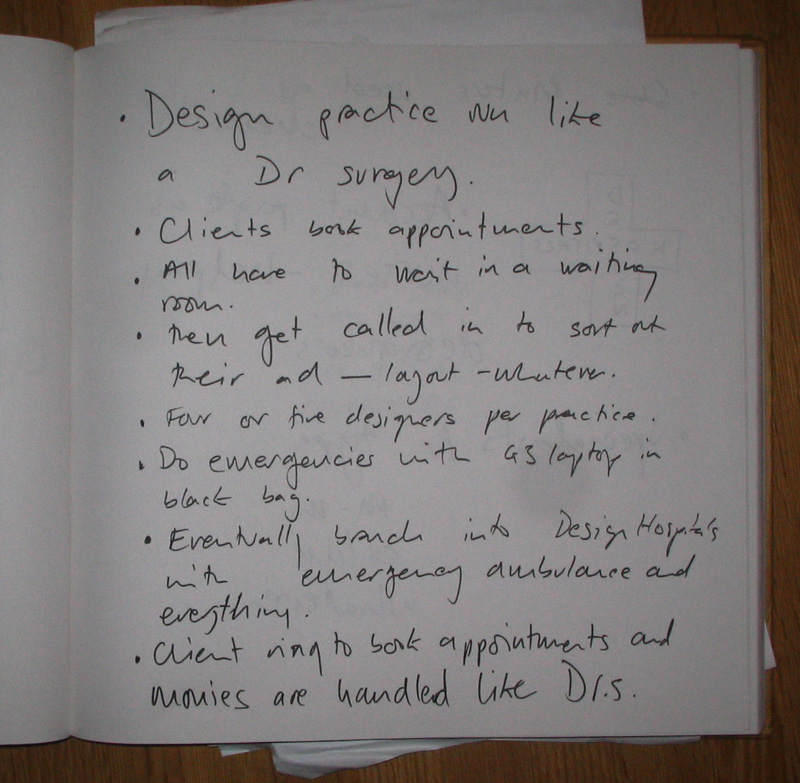 • Design practice run like
a Dr surgery.
• Clients book appointments.
• All have to wait in a waiting
room.
• then get called in to sort out
their ad — layout - whatever.
• Four or five designers per practice.
• Do emergencies with G3 laptop in
black bag.
• Eventually branch into Design Hospitals
with emergency ambulance and
everything.
• Client ring to book appointments and
monies are handled like Dr.s.